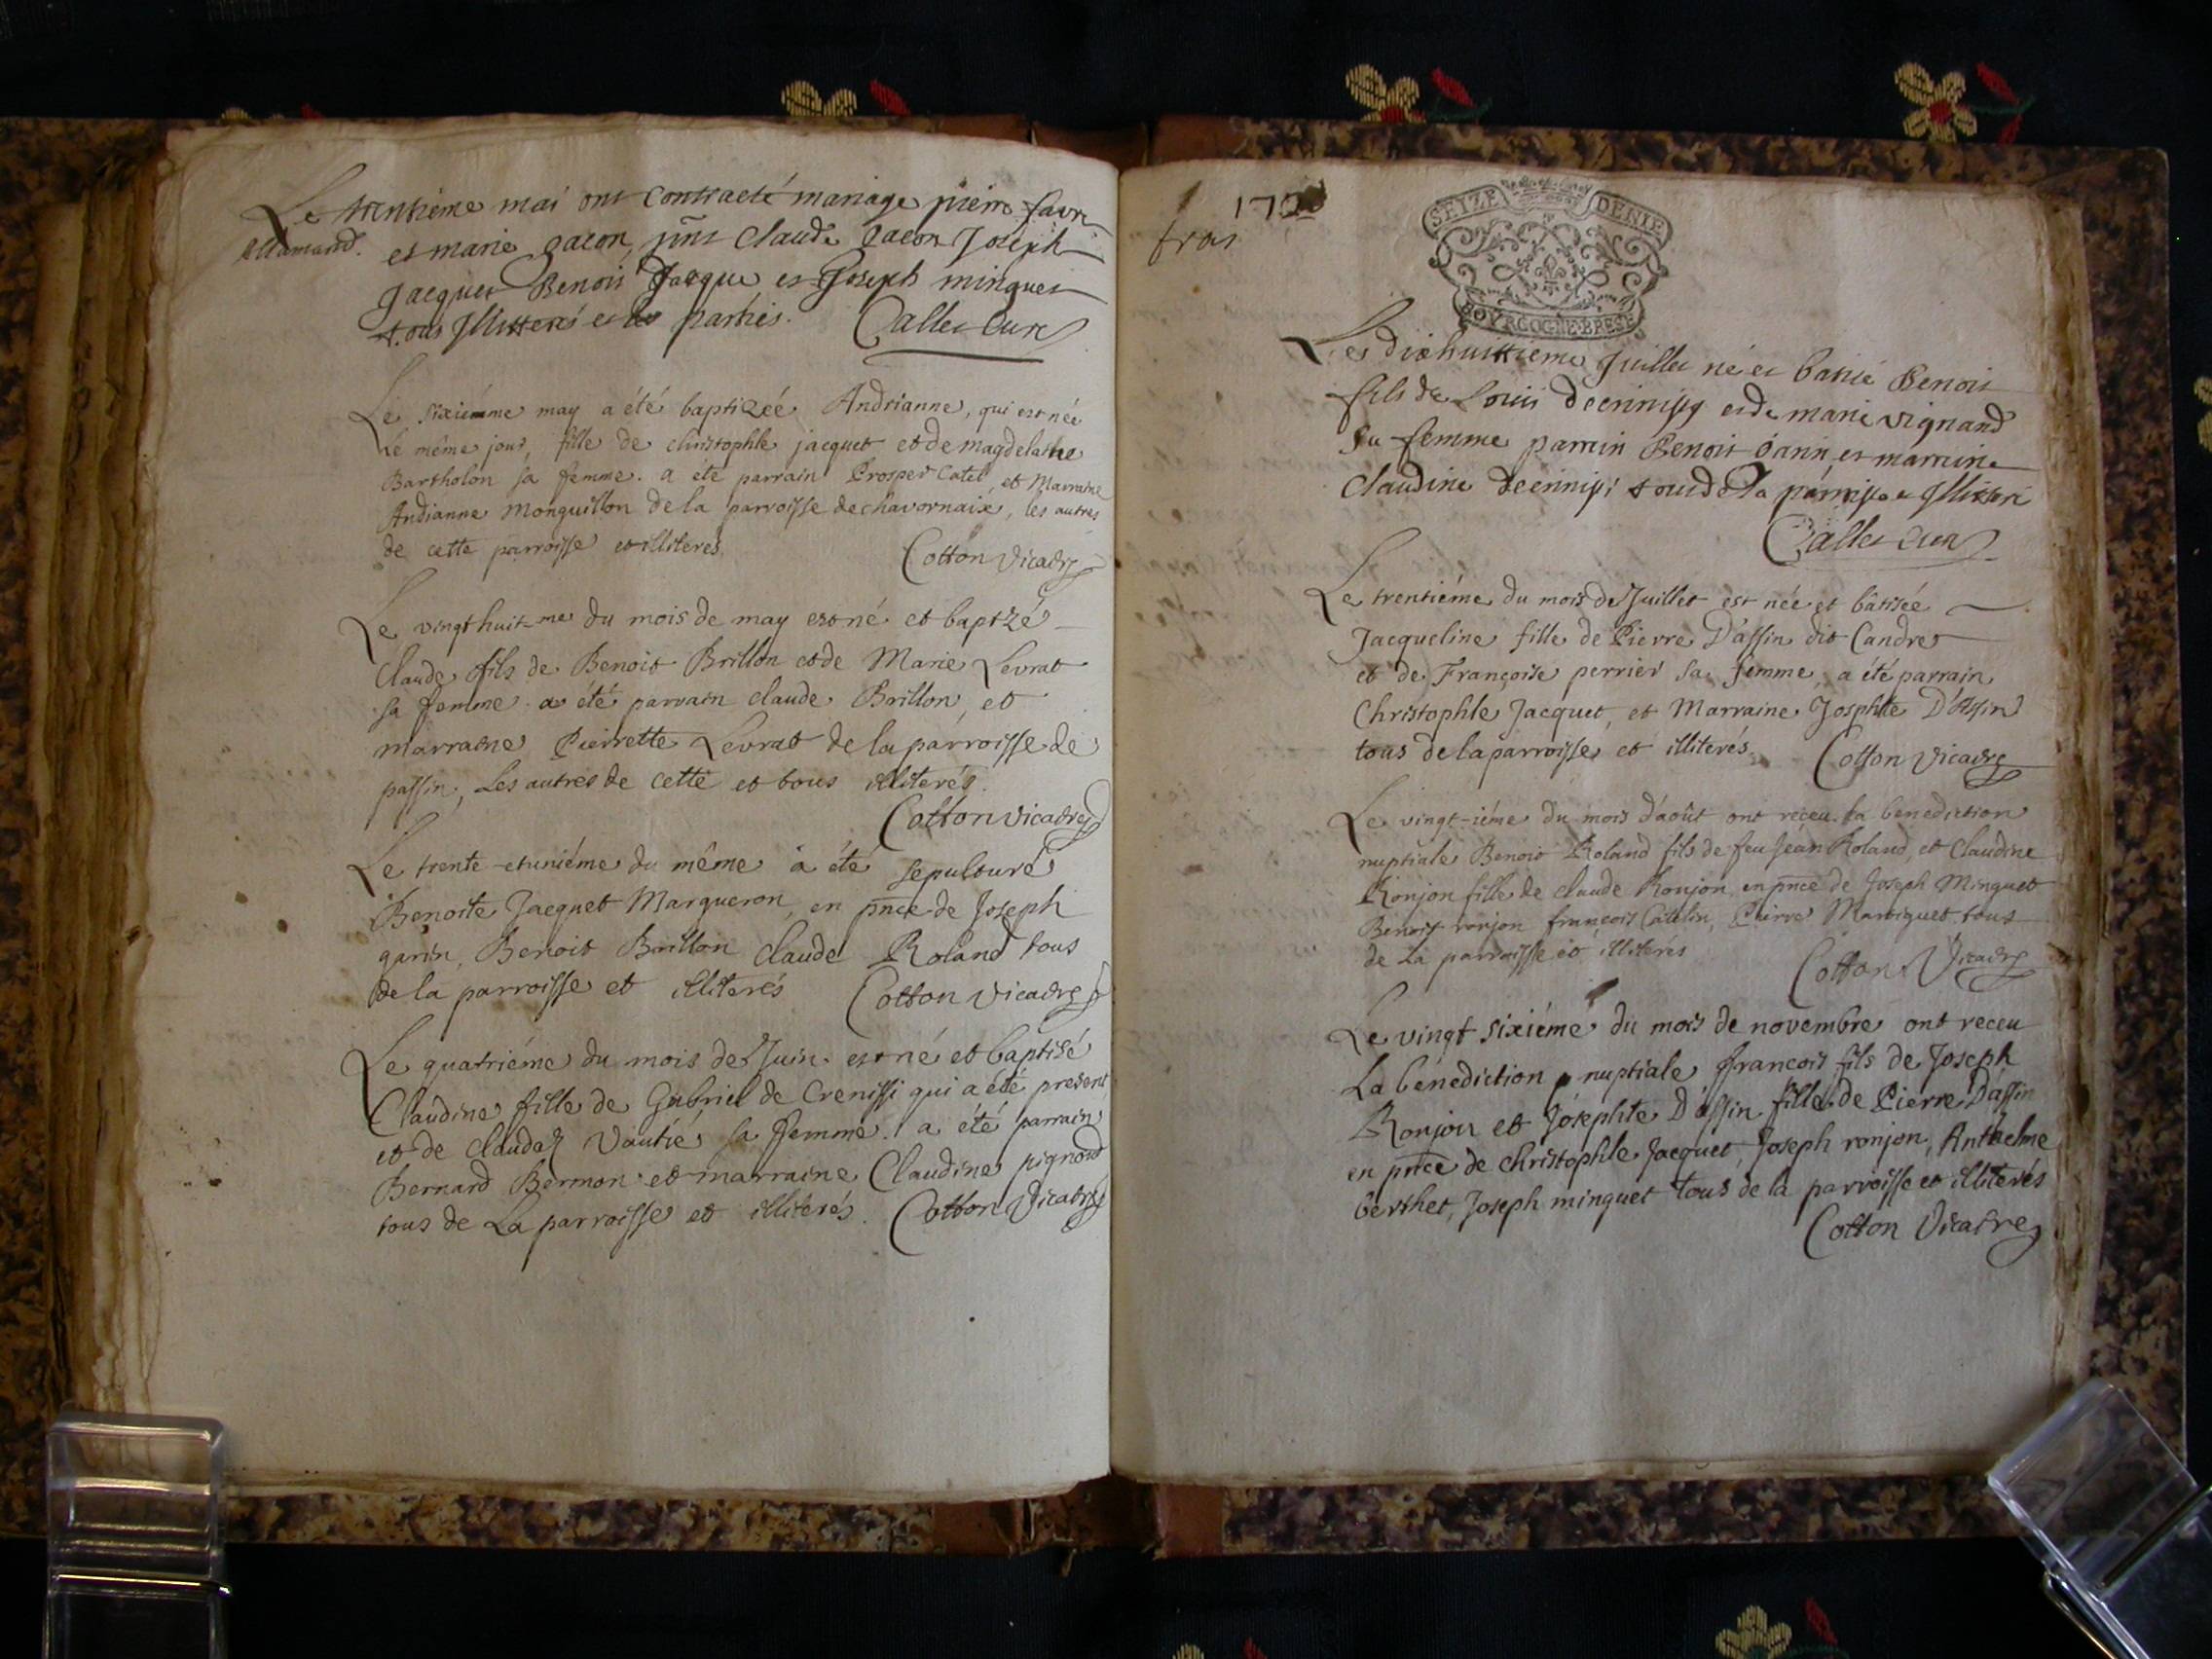 Le trentième mai ont contracté mariage pierre favre
allamand. et marie gacon, pñs Claude Gacon Joseph
Jacquet Benoit Jacque et Joseph minguet
tous Illitterés et les parties. Callet Curé
Le sixiémme may a été baptizéé Andrianne, qui est née
le même jour, fille de christophle jacquet et de magdelaine
Bartholon sa femme. a été parrain Prosper Catel, et Marraine
Andianne Monguillon de la parroisse de chavornaix, les autres
de cette parroisse et illiterés. Cotton Vicaire
Le vingt huit-me du mois de may est né et baptzé
Claude fils de Benoit Brillon et de Marie Levrat
sa femme a été parrain claude Brillon, et
marraine Pierrette Levrat de la parroisse de
passin, Les autres de cette et tous illiterés.
Cotton vicaire
Le trente-et uniéme du même a été sepulturé
Benoite Jacquet Margueron, en pnce de Joseph
garin, Benoit Brillon Claude Roland tous
de la parroisse et illiterés Cotton vicaire
Le quatriéme du mois de Juin est né et baptisé
Claudine fille de Gabriel de Crenissi qui a été present
et de Clauda Vautié sa femme. a été parrain
Bernard Bermon et marraine Claudine pignord
tous de La parroisse et illiterés. Cotton Vicaire
SEIZE DENIE
BOVRGOGNE BRESE
Les dixhuittieme Juillet né et batisé Benoit
fils de Louis decrinissy et de marie vignand
sa femme parrain Benoit Garin et marraine
Claudine decrinissi tous de la parroisse et Illitteré
Callet Curé
Le trentiéme du mois de Juillet est née et batisée
Jacqueline fille de Pierre D'assin dit Candre
et de Françoise perrier sa femme, a été parrain
Christophle Jacquet, et Marraine Josephte D'assin
tous de la parroisse et illiterés. Cotton Vicaire
Le vingt-iéme du mois d'août ont reçeu la benediction
nuptiale Benoit Roland fils de feu Jean Roland, et Claudine
Ronjon fille de claude Ronjon en pnce de Joseph Minguet
Benoit ronjon françois Catelin, Pierre Martiguet tous
de La parroisse et illiterés Cotton Vicaire
Le vingt sixiéme du mois de novembre ont receu
La bénediction nuptiale francois fils de Joseph
Ronjon et Josephte D'assin fille de Pierre Dassin
en pnce de christophle Jacquet, Joseph ronjon, Anthelme
berthet, Joseph minguet tous de la parroisse et illiterés
Cotton Vicaire